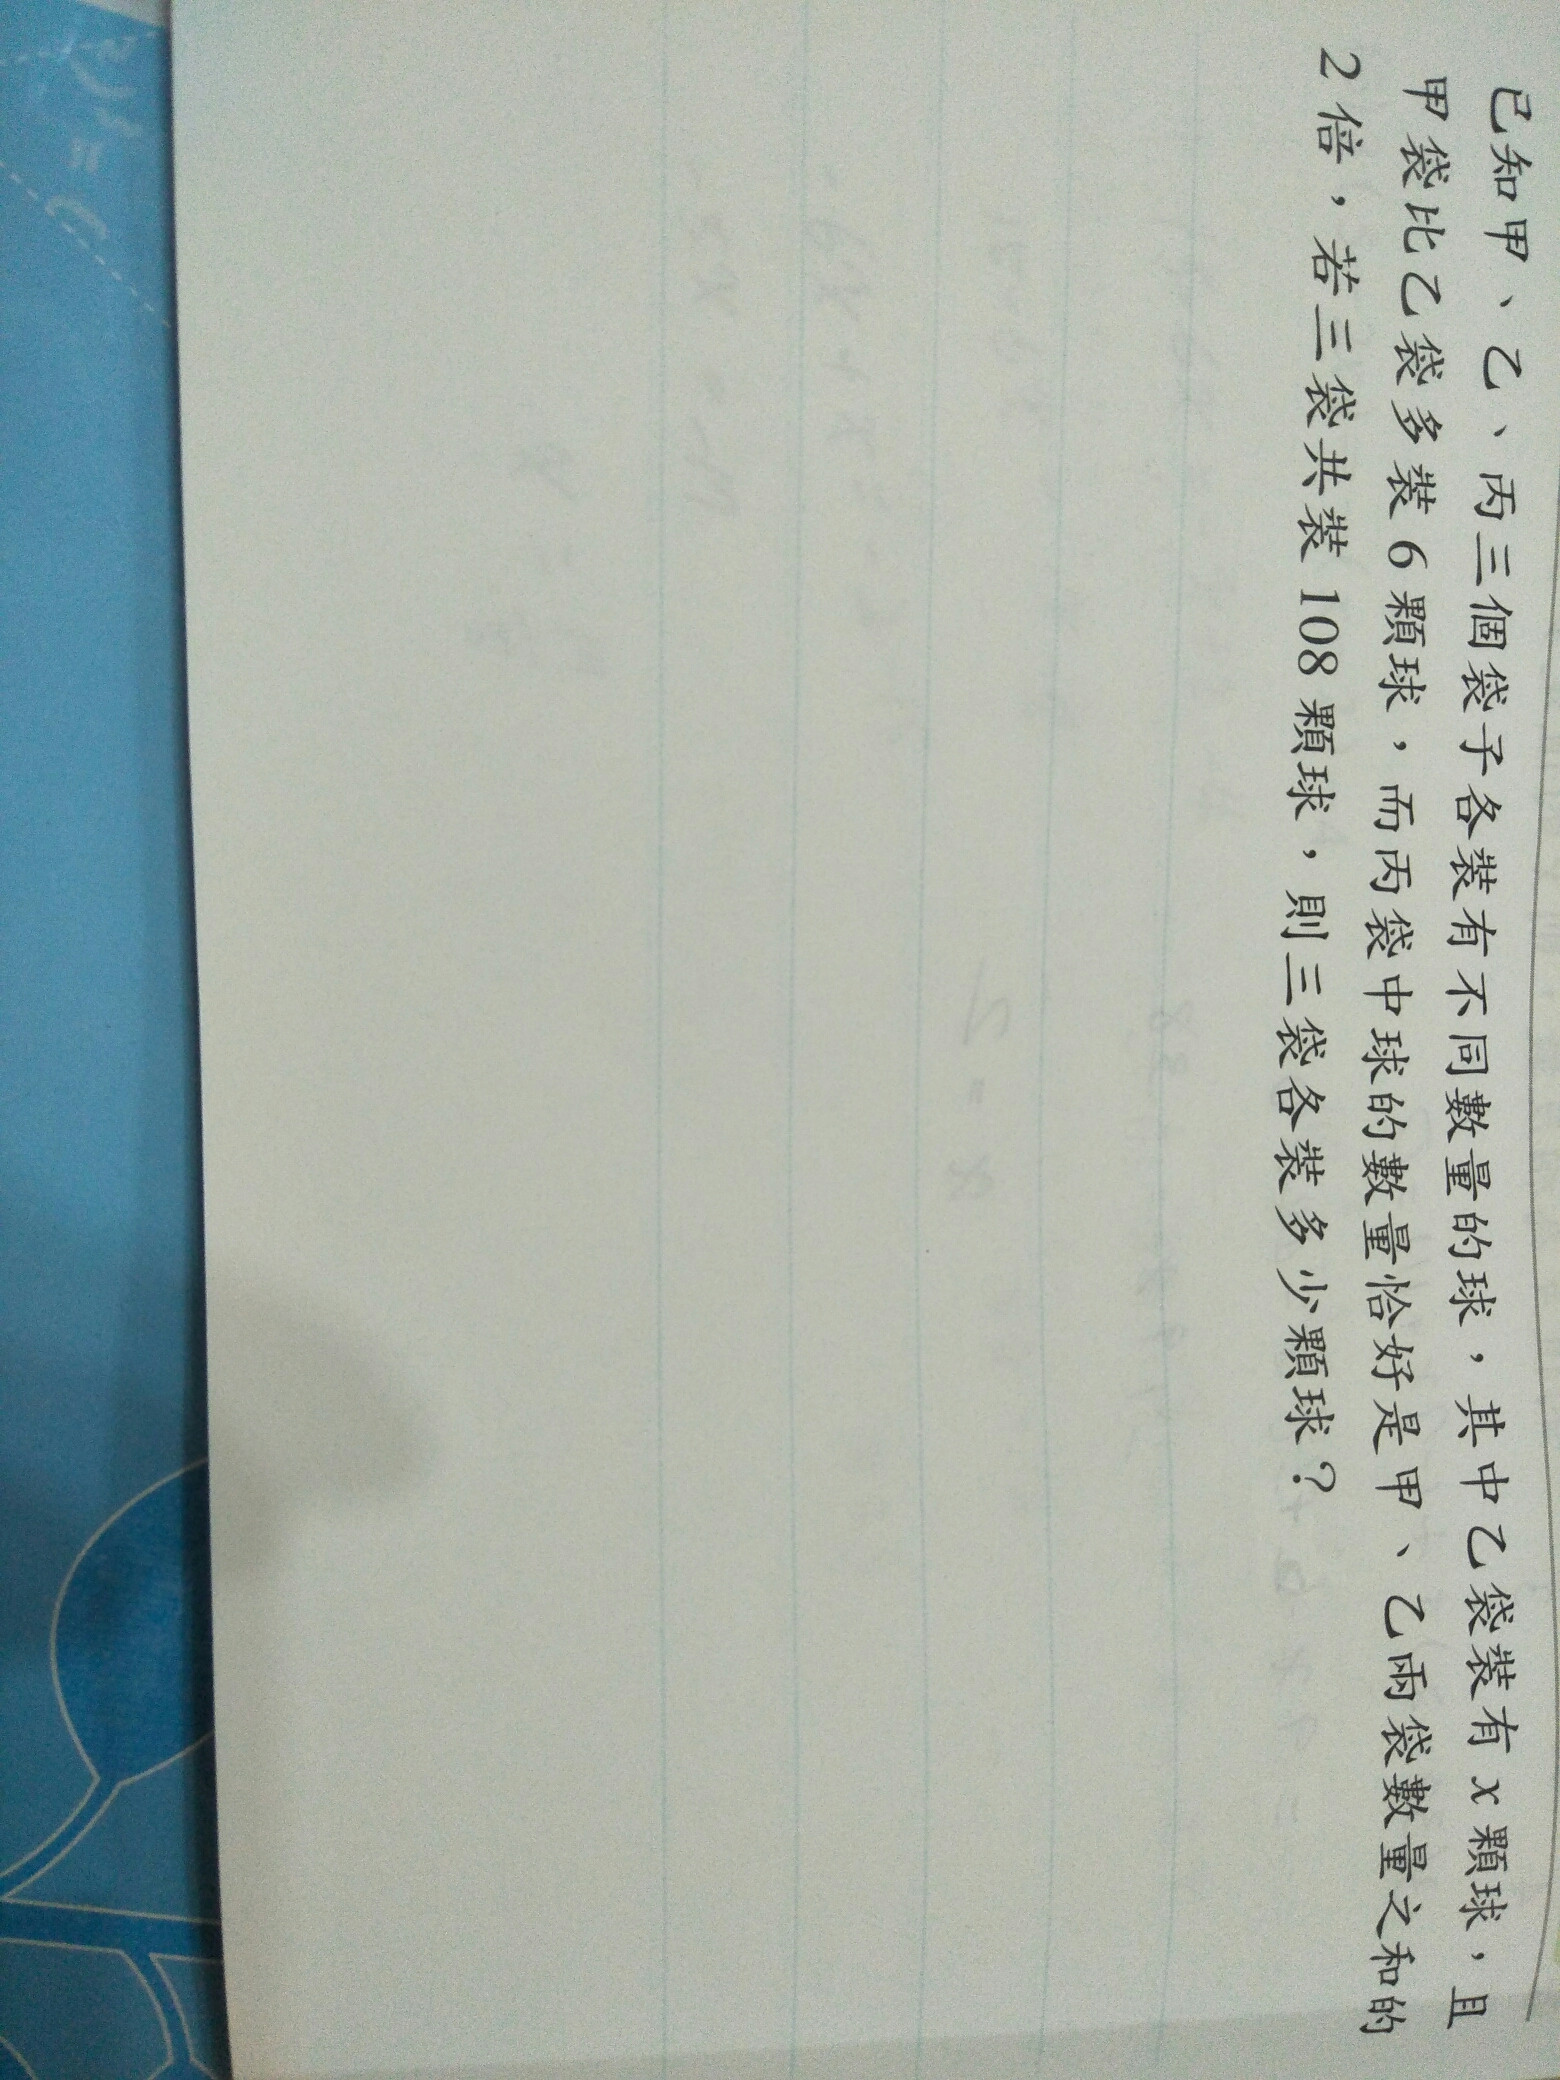 已知甲、乙、丙三個袋子各裝有不同數量的球，其中乙袋裝有 x 顆球，且
甲袋比乙袋多裝 6 顆球，而丙袋中球的數量恰好是甲、乙兩袋數量之和的
2 倍，若三袋共裝 108 顆球，則三袋各裝多少顆球？